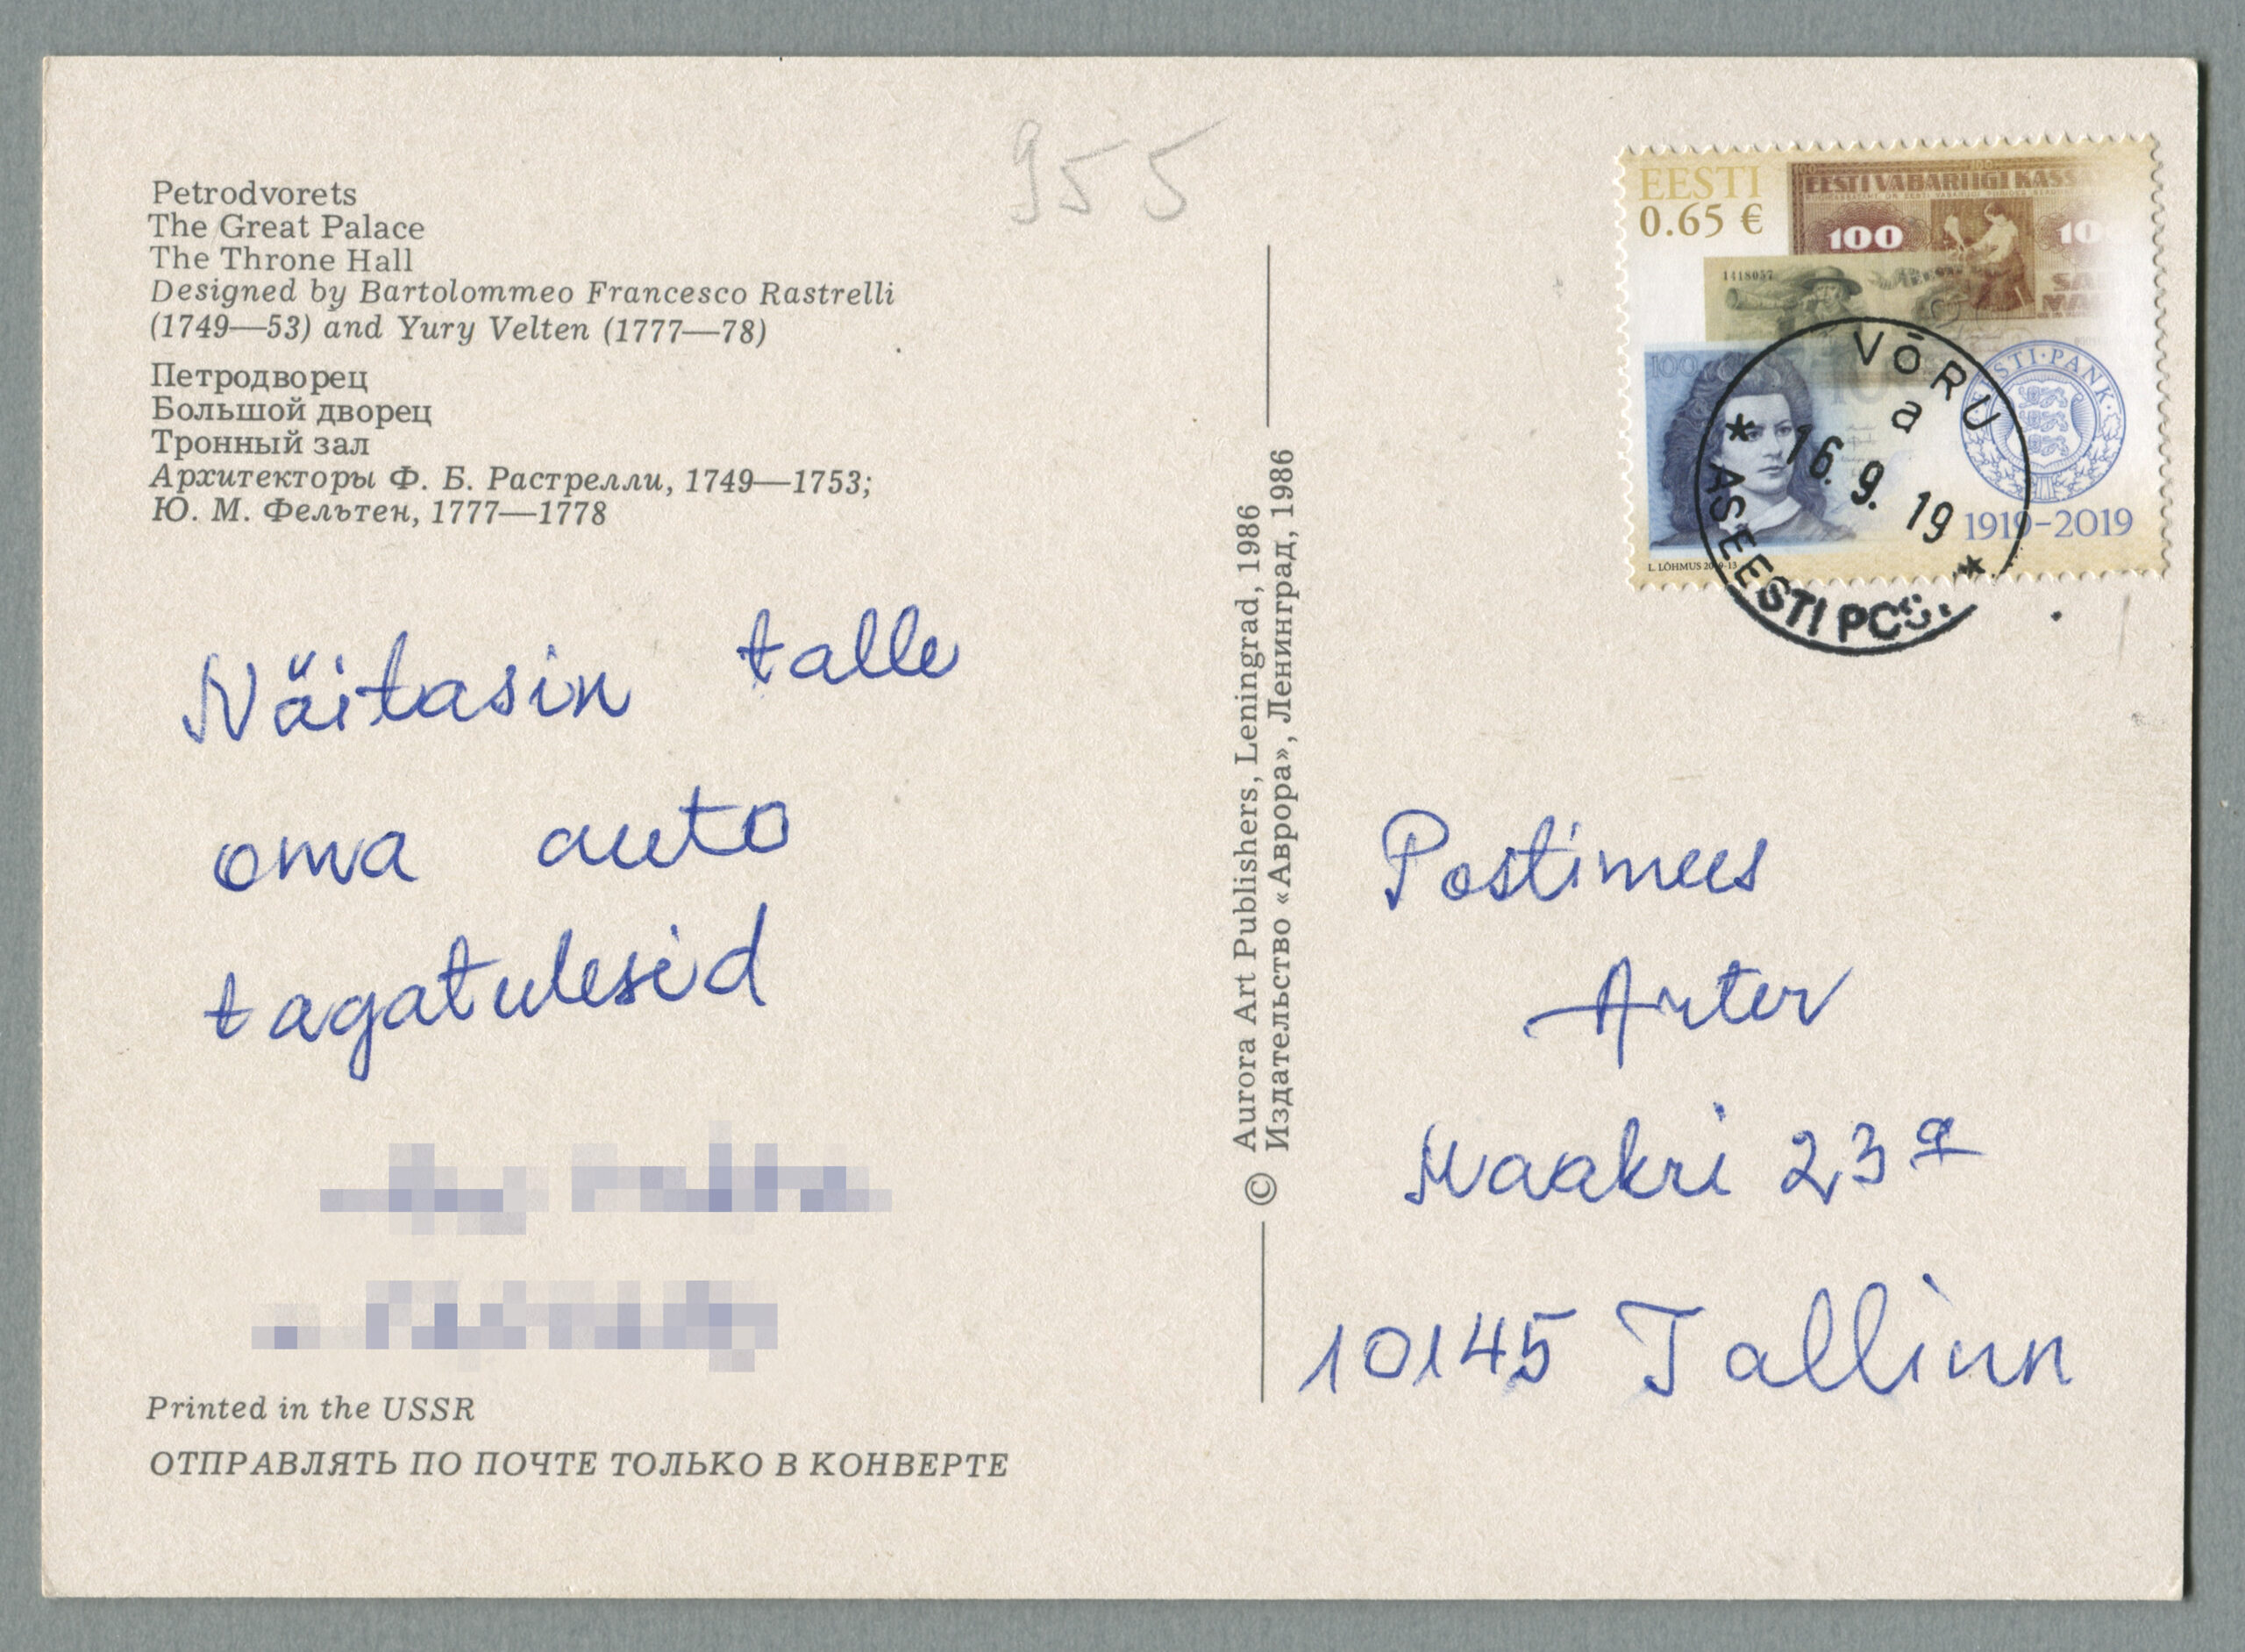 955
Petrodvorets
The Great Palace
The Throne Hall
Designed by Bartolommeo Francesco Rastrelli
(1749—53) and Yury Velten (1777—78)
Петродворец
Большой дворец
Тронный зал
Архитекторы Ф. Б. Растрелли, 1749—1753;
Ю. М. Фельтен, 1777—1778
Näitasin talle
oma auto
tagatulesid
Printed in the USSR
ОТПРАВЛЯТЬ ПО ПОЧТЕ ТОЛЬКО В КОНВЕРТЕ
© Aurora Art Publishers, Leningrad, 1986
Издательство «Аврора», Ленинград, 1986
EESTI
0.65 €
EESTI VABARIIGI
100
1418057
100
EESTI PANK
1919–2019
L. LÕHMUS
VÕRU
a
16.9.19
AS EESTI
Postimees
Arter
Maakri 23a
10145 Tallinn